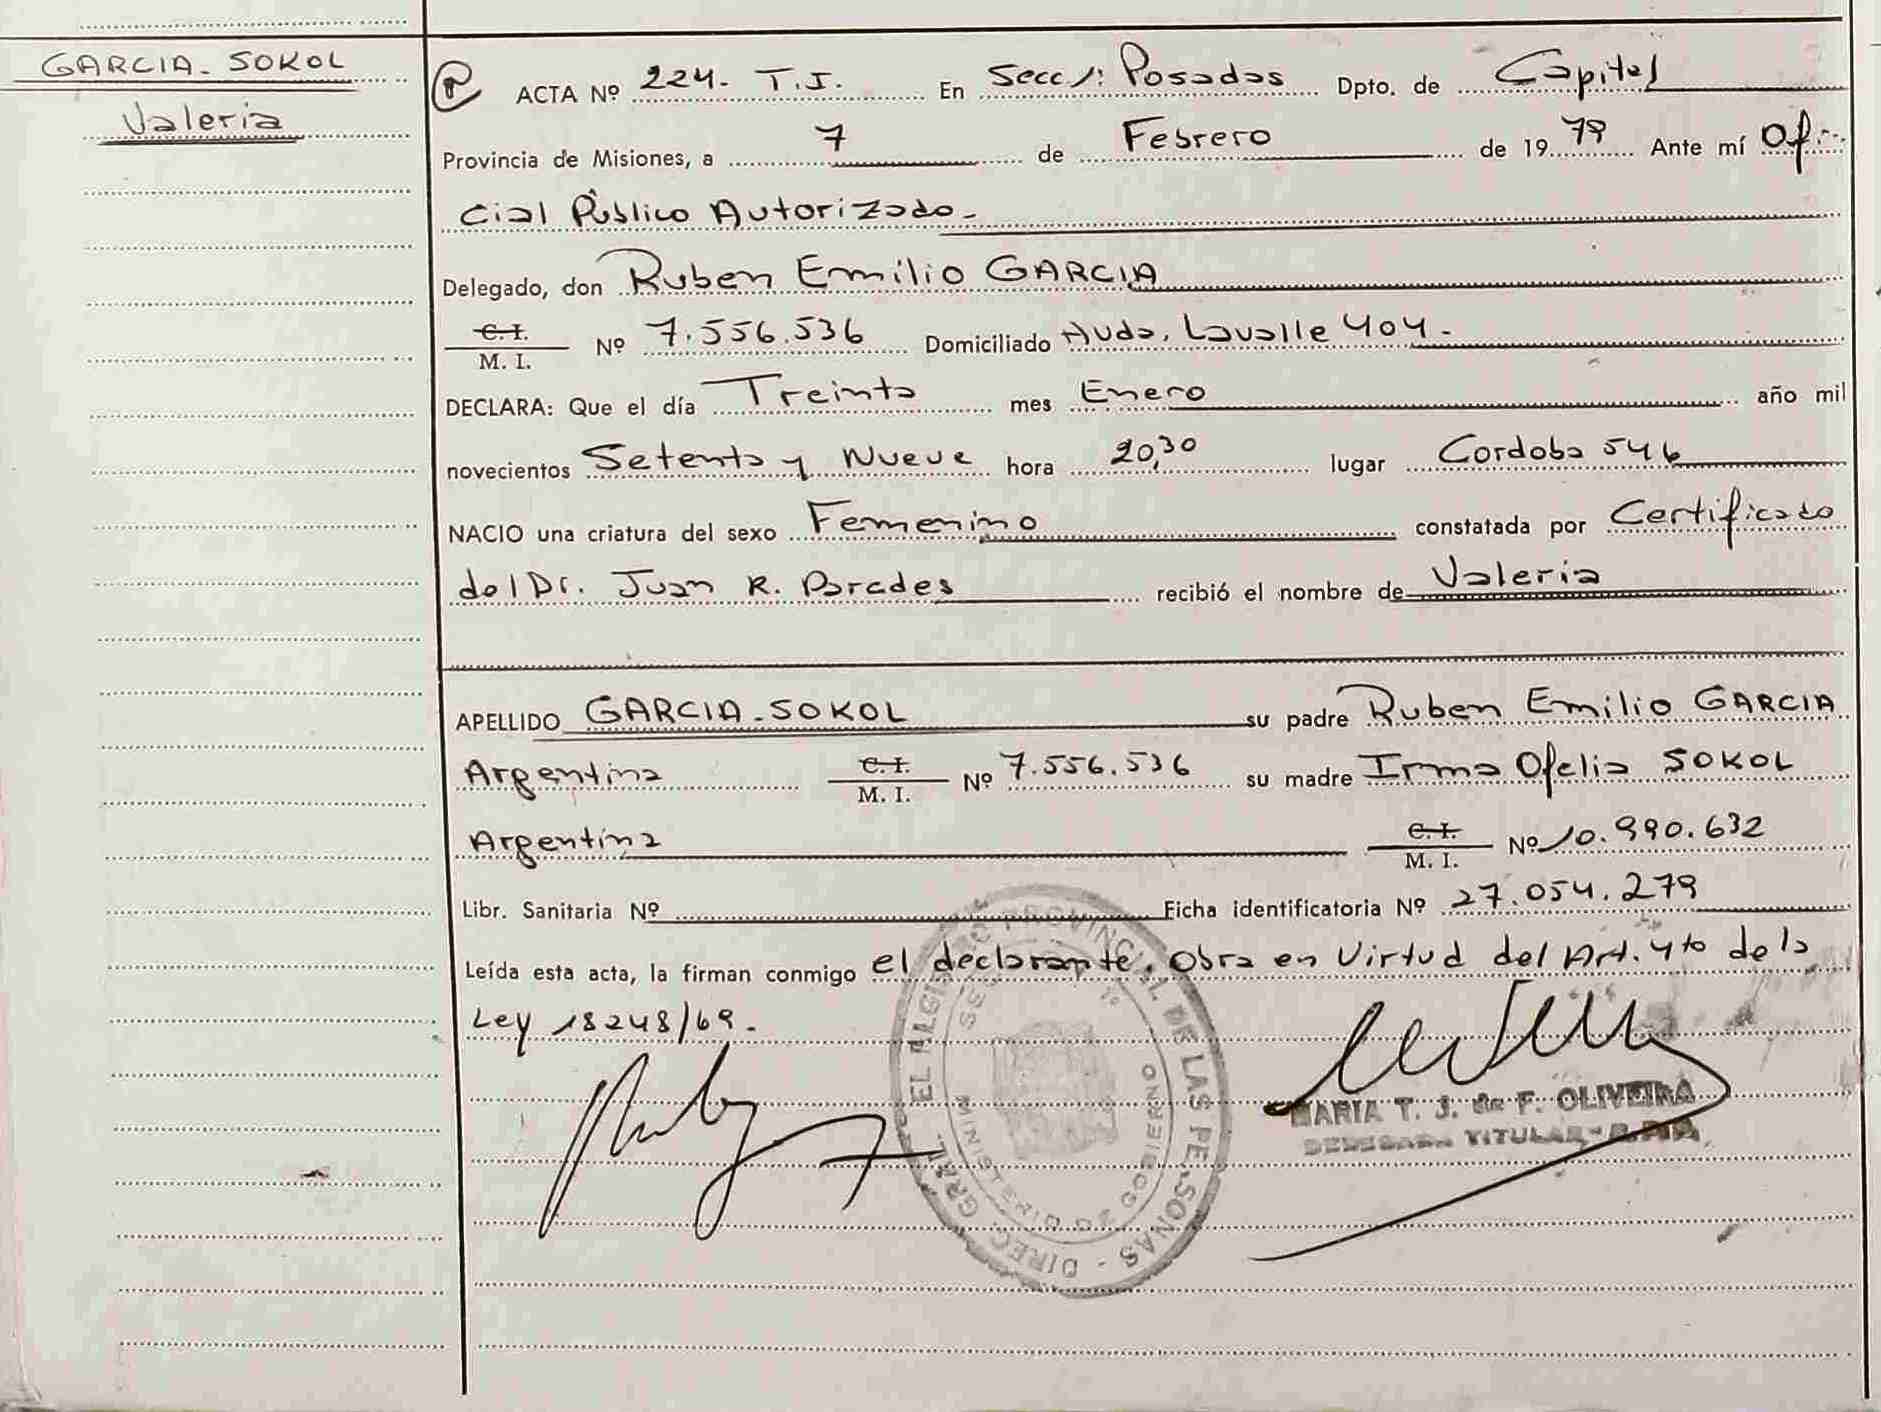 GARCIA-SOKOL
Valeria
ACTA Nº 224- T.I. En Secc 1: Posadas Dpto. de Capital
Provincia de Misiones, a 7 de Febrero de 1979 Ante mí Ofi-
cial Público Autorizado-
Delegado, don Ruben Emilio GARCIA
C.I.
M. I. Nº 7.556.536 Domiciliado Avda. Lavalle 404-
DECLARA: Que el día Treinta mes Enero año mil
novecientos Setenta y Nueve hora 20,30 lugar Cordoba 546
NACIO una criatura del sexo Femenino constatada por Certificado
del Dr. Juan R. Paredes recibió el nombre de Valeria
APELLIDO GARCIA-SOKOL su padre Ruben Emilio GARCIA
Argentina C.I. M. I. Nº 7.556.536 su madre Irma Ofelia SOKOL
Argentina C.I. M. I. Nº 10.990.632
Libr. Sanitaria Nº Ficha identificatoria Nº 27.054.279
Leída esta acta, la firman conmigo el declarante. Obra en Virtud del Art. 4to de la
Ley 18248/69.
DIREC. GRAL. DE LAS PERSONAS
MINISTERIO DE GOBIERNO
MARIA T. J. de F. OLIVEIRA
DELEGADA TITULAR